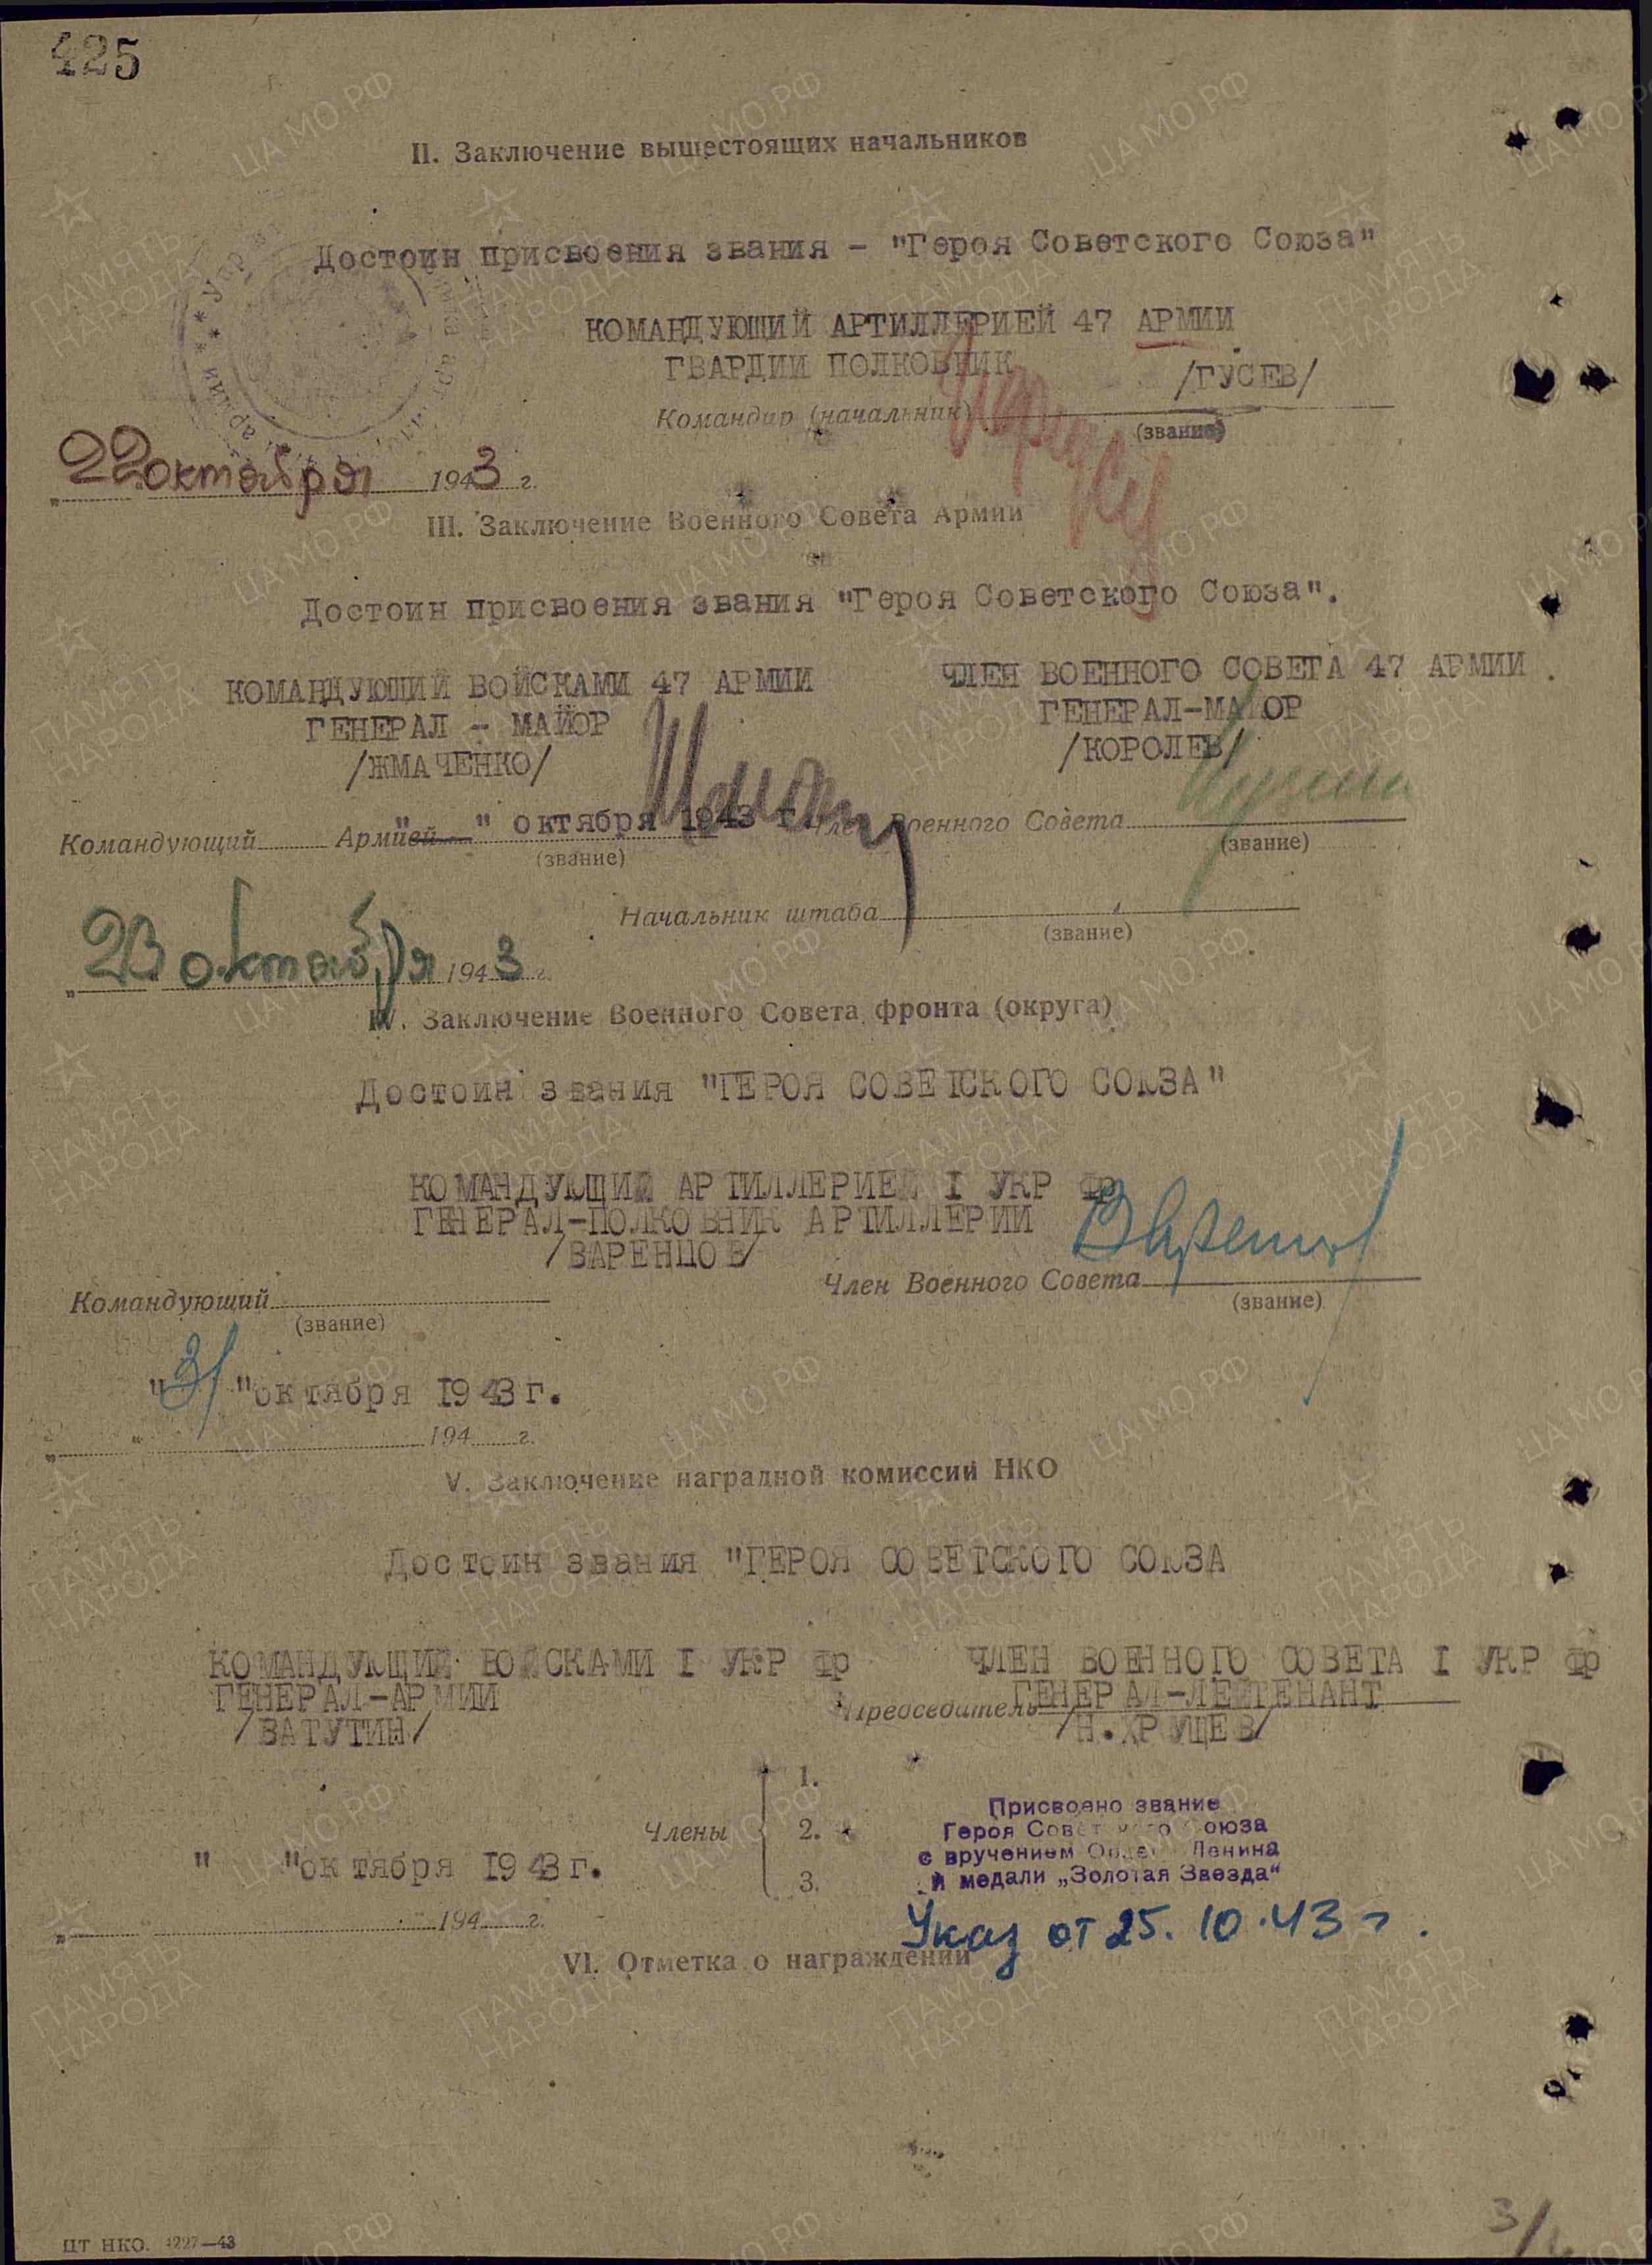 425
II. Заключение вышестоящих начальников
Достоин присвоения звания - "Героя Советского Союза"
КОМАНДУЮЩИЙ АРТИЛЛЕРИЕЙ 47 АРМИИ
ГВАРДИИ ПОЛКОВНИК /ГУСЕВ/
Командир (начальник)
(звание)
22 октября 1943 г.
III. Заключение Военного Совета Армии
Достоин присвоения звания "Героя Советского Союза".
КОМАНДУЮЩИЙ ВОЙСКАМИ 47 АРМИИ
ГЕНЕРАЛ - МАЙОР
/ЖМАЧЕНКО/
ЧЛЕН ВОЕННОГО СОВЕТА 47 АРМИИ
ГЕНЕРАЛ-МАЙОР
/КОРОЛЕВ/
" " октября 1943 г.
Командующий Армией Член Военного Совета
(звание) (звание)
Начальник штаба
(звание)
23 октября 1943 г.
IV. Заключение Военного Совета фронта (округа)
Достоин звания "ГЕРОЯ СОВЕТСКОГО СОЮЗА"
КОМАНДУЮЩИЙ АРТИЛЛЕРИЕЙ I УКР ФР
ГЕНЕРАЛ-ПОЛКОВНИК АРТИЛЛЕРИИ
/ВАРЕНЦОВ/
Командующий Член Военного Совета
(звание) (звание)
"31" октября 1943 г.
" " 194 г.
V. Заключение наградной комиссии НКО
Достоин звания "ГЕРОЯ СОВЕТСКОГО СОЮЗА
КОМАНДУЮЩИЙ ВОЙСКАМИ I УКР ФР
ГЕНЕРАЛ-АРМИИ
/ВАТУТИН/
ЧЛЕН ВОЕННОГО СОВЕТА I УКР ФР
ГЕНЕРАЛ-ЛЕЙТЕНАНТ
Председатель
/Н.ХРУЩЕВ/
Члены
1.
2.
3.
Присвоено звание
Героя Советского Союза
с вручением Ордена Ленина
и медали „Золотая Звезда"
Указ от 25.10.43 г.
" "октября 1943 г.
" " 194 г.
VI. Отметка о награждении
ЦТ НКО. 4227—43
ЦА МО РФ
ПАМЯТЬ НАРОДА